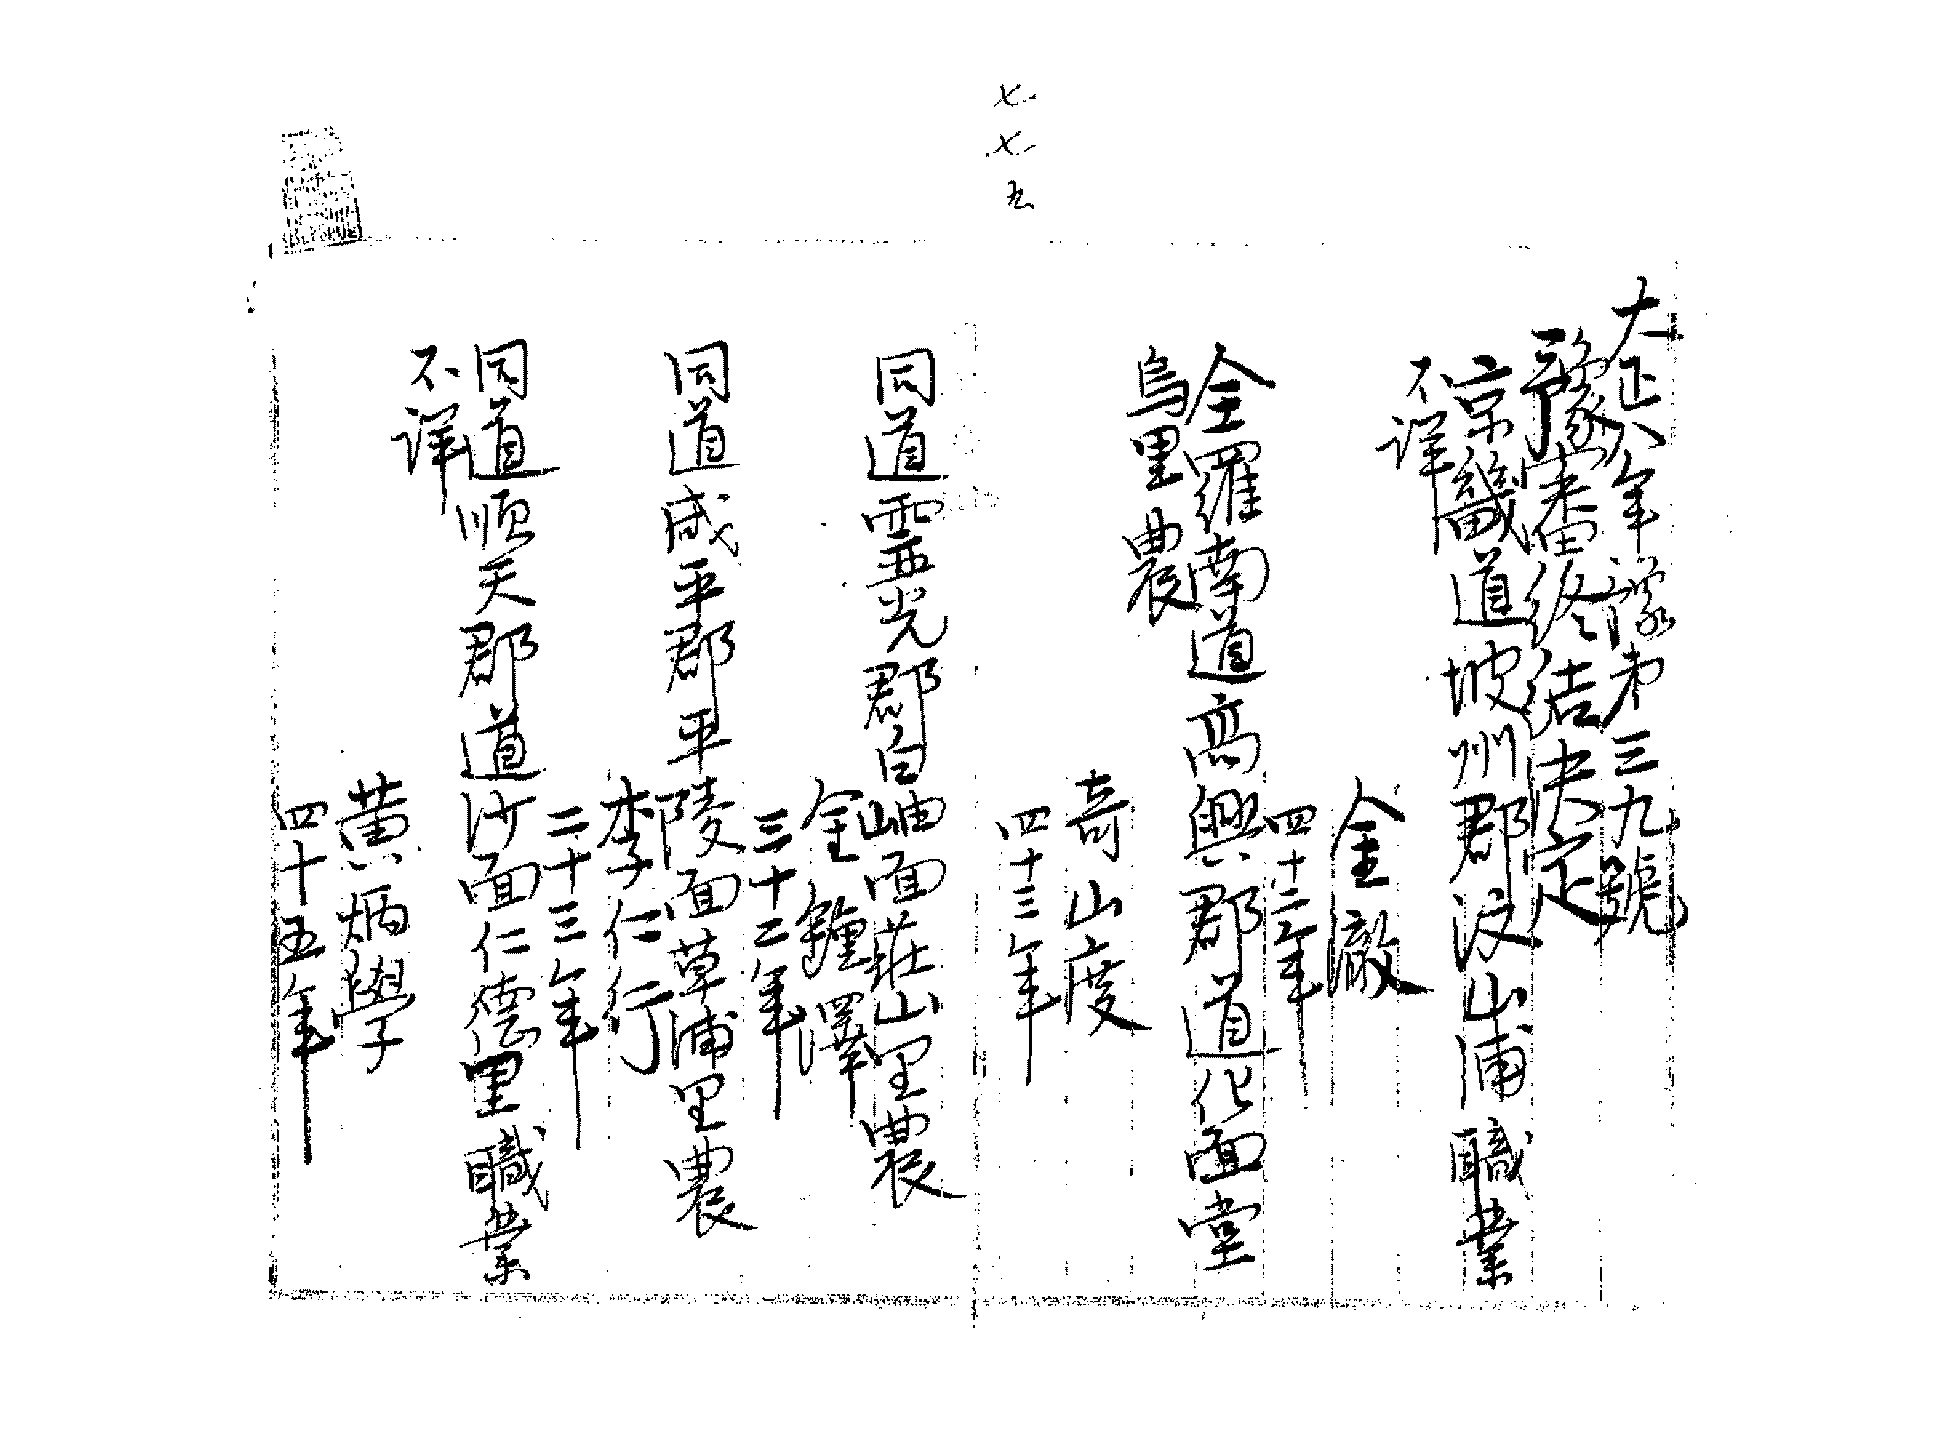 七七五
大正八年豫第三九號
豫審終結決定
京畿道坡州郡汶山浦職業
不詳
金澈
四十二年
全羅南道高興郡道化面堂
烏里農
奇山度
四十三年
同道靈光郡白岫面莊山里農
金鍾澤
三十二年
同道咸平郡平陵面草浦里農
李仁行
二十三年
同道順天郡道沙面仁德里職業
不詳
黃炳學
四十五年